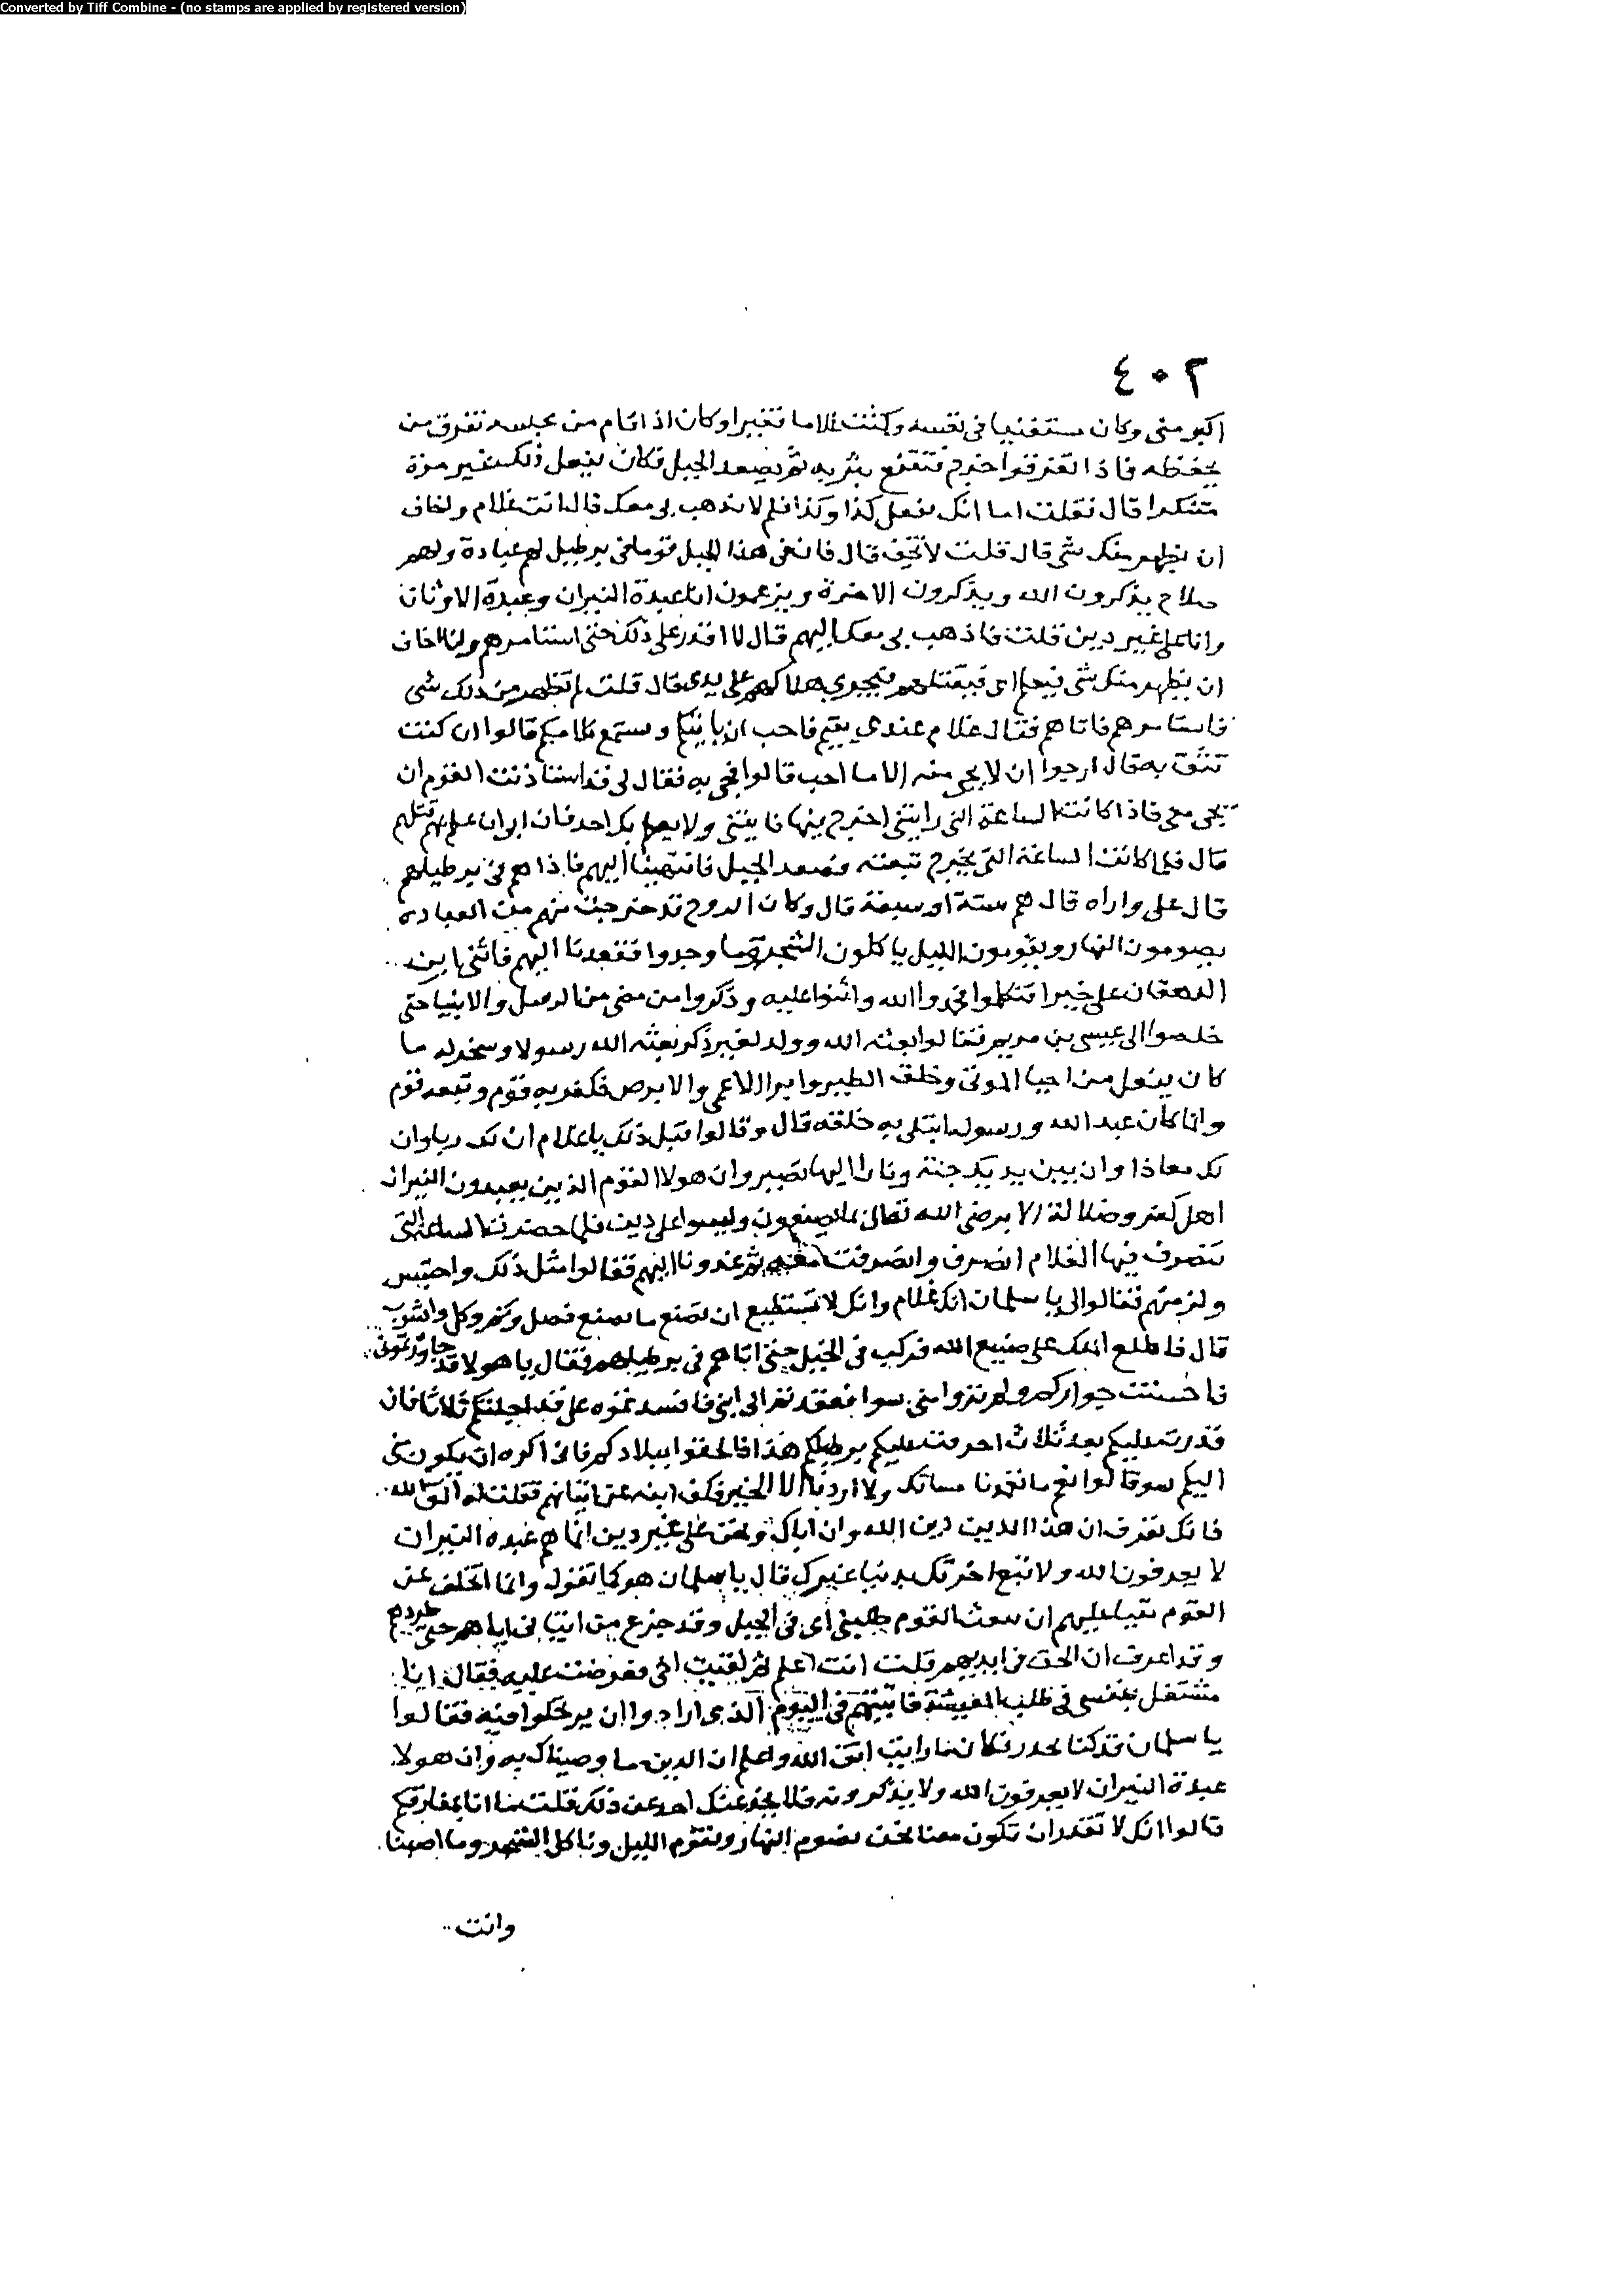 Converted by Tiff Combine - (no stamps are applied by registered version)
٤٠٢
اكبر منى وكان مستغنيا فى نفسه وكنت غلاما فقيرا وكان اذا قام من مجلسه تفرق من
يحفظه فاذا تفرقوا خرج فتقنع بثوبه ثم يصعد الجبل فكان يفعل ذلك غير مرة
متنكرا قال فقلت اما انك تفعل كذا وكذا فلم لا تذهب بى معك قال انت غلام واخاف
ان يظهر منك شى قال قلت لا تخف قال فان فى هذا الجبل قوما فى برطيل لهم عبادة ولهم
صلاح يذكرون الله ويذكرون الاخرة ويزعمون انا عبدة النيران وعبدة الاوثان
وانا على غير دين قلت فاذهب بى معك اليهم قال لا اقدر على ذلك حتى استامرهم وانا اخاف
ان يظهر منك شى فيعلم ابى فيقتلهم فيجرى هلاكهم على يدى قال قلت لم يظهر من ذلك شى
فاستامرهم فاتاهم فقال غلام عندى يتيم فاحب ان ياتيكم ويستمع كلامكم قالوا ان كنت
تثق به قال ارجوا ان لا يجى منه الا ما احب قالوا فجى به فقال لى قد استاذنت القوم ان
تجى معى فاذا كانت الساعة التى رايتنى اخرج فيها فاتنى ولا يعلم بك احد فان ابى ان علم بهم قتلهم
قال فلما كانت الساعة التى يخرج تبعته فصعد الجبل فانتهينا اليهم فاذا هم فى برطيلهم
قال على واراه قال هم ستة او سبعة قال وكان الروح قد خرجت منهم من العبادة
يصومون النهار ويقومون الليل ياكلون الشجر وما وجدوا فقعدنا اليهم فاثنى ابن
الدهقان على خيرا فتكلموا فحمدوا الله واثنوا عليه وذكروا من مضى من الرسل والانبيا حتى
خلصوا الى عيسى بن مريم فقالوا بعثه الله وولد لغير ذكر بعثه الله رسولا وسخر له ما
كان يفعل من احيا الموتى وخلق الطير وابرا الاعمى والابرص فكفر به قوم وتبعه قوم
وانما كان عبد الله ورسوله ابتلى به خلقه قال وقالوا قبل ذلك يا غلام ان لك ربا وان
لك معادا وان بين يديك جنة ونارا اليها تصير وان هولا القوم الذين يعبدون النيران
اهل كفر وضلالة لا يرضى الله تعالى بما يصنعون وليسوا على دين فلما حضرت الساعة التى
ينصرف فيها الغلام انصرف وانصرفت معه ثم غدونا اليهم فقالوا مثل ذلك واحسن
ولزمتهم فقالوا لى يا سلمان انك غلام وانك لا تستطيع ان تصنع ما نصنع فصل ونم وكل واشرب
قال فاطلع الملك على صنيع الله فركب فى الخيل حتى اتاهم فى برطيلهم فقال يا هولا قد جاورتمونى
فاحسنت جواركم ولم تروا منى سوا فعمدتم الى ابنى فافسدتموه على قد اجلتكم ثلاثا فان
قدرت عليكم بعد ثلاث احرقت عليكم برطيلكم هذا فالحقوا ببلادكم فانى اكره ان يكون منى
اليكم سو قالوا نعم ما تعمدنا مساتك ولا اردنا الا الخير فكف ابنه عن اتيانهم فقلت له اتق الله
فانك تعرف ان هذا الدين دين الله وان اباك ونحن على غير دين انما هم عبدة النيران
لا يعرفون الله ولا تبع اخرتك بدنيا غيرك قال يا سلمان هو كما تقول وانما اتخلف عن
القوم بقيا عليهم ان تبعت القوم طلبنى ابى فى الجبل وقد جزع من اتيانى اياهم حتى طردهم
وقد اعرف ان الحق فى ايديهم قلت انت اعلم ثم لقيت اخى فعرضت عليه فقال انا
مشتغل بنفسى فى طلب المعيشة فاتيتهم فى اليوم الذى ارادوا ان يرتحلوا فيه فقالوا
يا سلمان قد كنا نحذر فكان ما رايت اتق الله واعلم ان الدين ما اوصيناك به وان هولا
عبدة النيران لا يعرفون الله ولا يذكرونه فلا يخدعنك احد عن ذلك قلت ما انا بمفارقكم
قالوا انك لا تقدر ان تكون معنا نحن نصوم النهار ونقوم الليل وناكل الشجر وما اصبنا
وانت